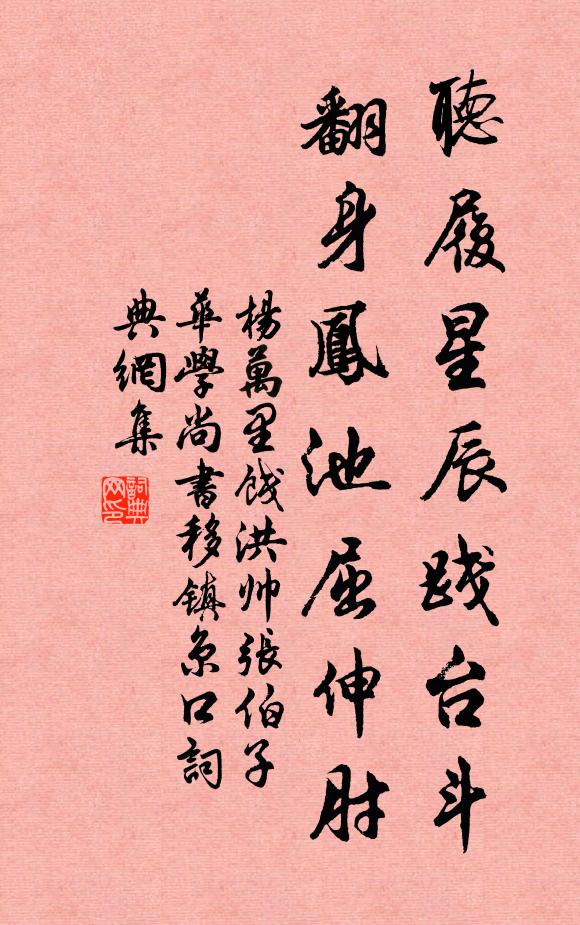 聽履星辰踐台斗
翻身鳳池屈伸肘
楊萬里餞洪帅張伯子
華學尚書移鎮京口詞
典網集
詞典網印